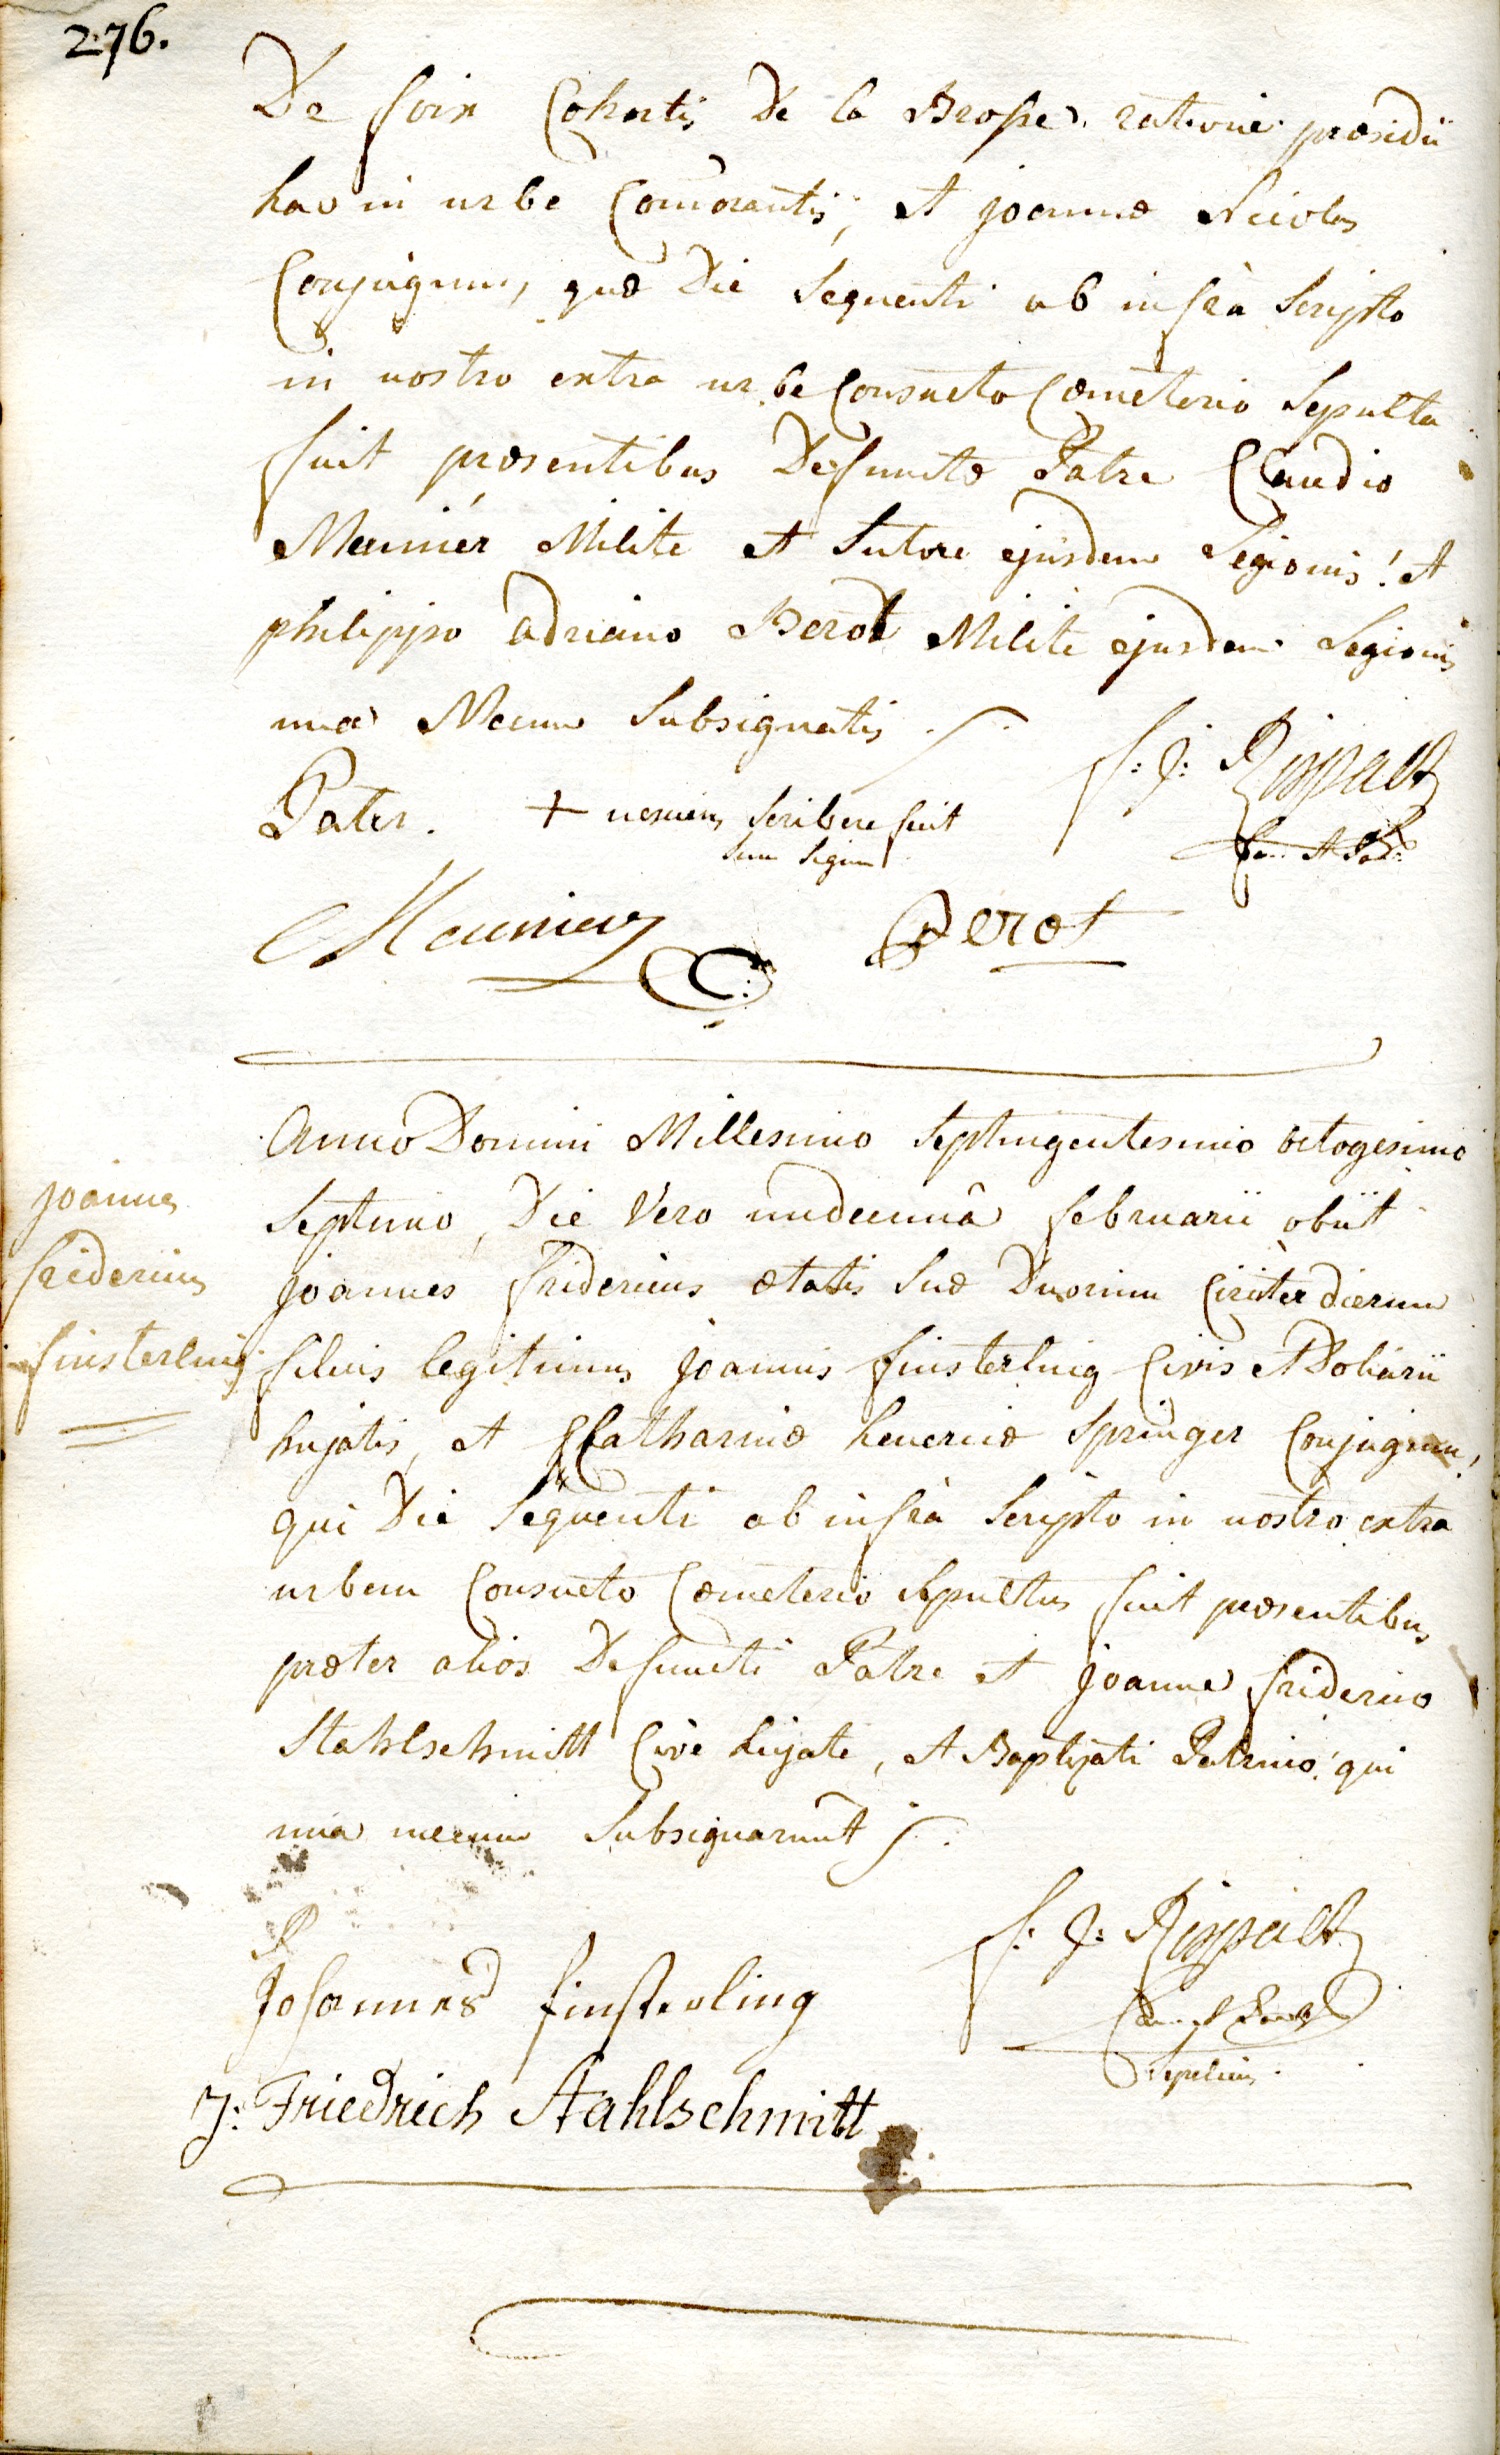 276.
De foix Cohortis De la Brosse ratione præsidii
hac in urbe Com̄orantis, et joannæ Nicolas
Conjugum, quæ Die Sequenti ab infrà Scripto
in nostro extra urbe Consueto Cœmeterio Sepulta
fuit præsentibus Defunctæ Patre Claudio
Meuniér Milite et Sutore ejusdem Legionis! et
philippo adriano Berot Milite ejusdem Legionis
unà Mecum Subsignatis
f: J: Rippelt
Pater. + nesciens Scribere fecit
Suum Signum
Meunier Berot
Anno Domini Millesimo Septingentesimo octogesimo
Septimo, Die Vero undecimâ februarii obiit
joannes
fridericus
finsterling
joannes fridericus ætatis Suæ Duorum Circiter dierum
filius legitimus joannis finsterling Civis et Doliarii
hujatis, et Catharinæ henericæ Springer Conjugum,
qui Die Sequenti ab infrà Scripto in nostro extra
urbem Consueto Cœmeterio Sepultus fuit præsentibus
præter alios Defuncti Patre et joanne friderico
Stahlschmitt Cive hujate, et Baptizati Patrino! qui
unà mecum Subsignarunt
f: J: Rippelt
Johannes finsterling
Sepeliens
J: Friedrich Stahlschmitt